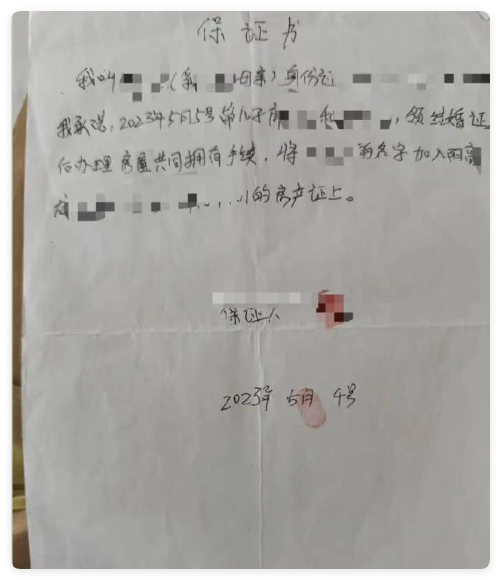 保证书
我叫 ( 母亲) 身份证
我承诺,2023年5月5号 儿子 和 ,领结婚证
后办理房屋共同拥有手续,将 的名字加入
的房产证上。
保证人
2023年 5月 4号